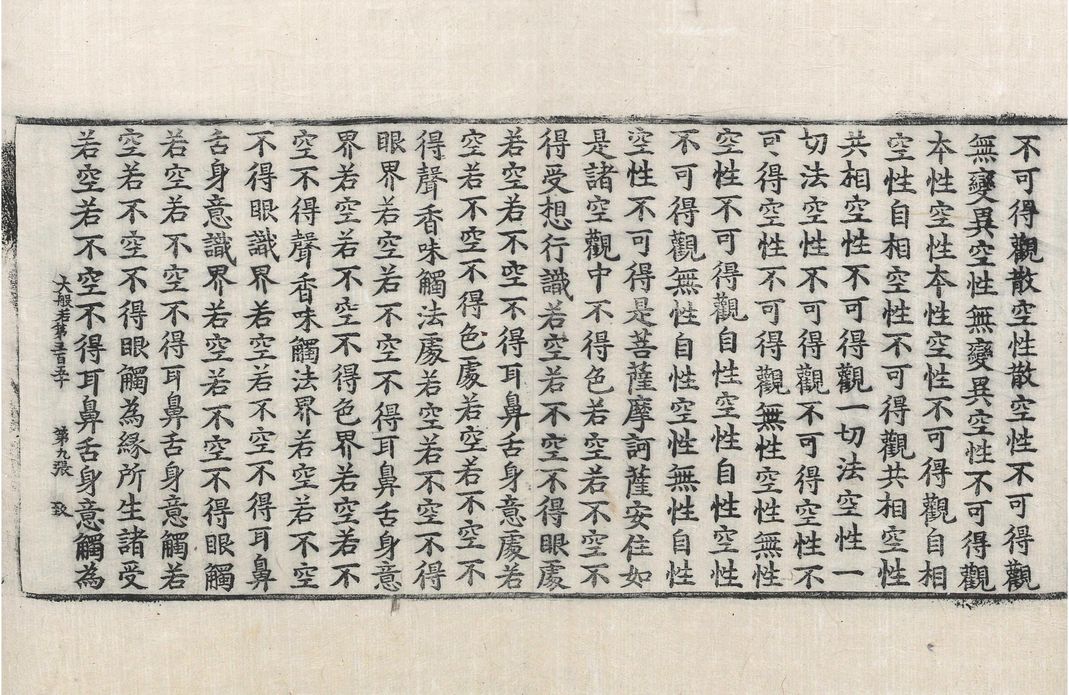 不可得觀散空性散空性不可得觀
無變異空性無變異空性不可得觀
本性空性本性空性不可得觀自相
空性自相空性不可得觀共相空性
共相空性不可得觀一切法空性一
切法空性不可得觀不可得空性不
可得空性不可得觀無性空性無性
空性不可得觀自性空性自性空性
不可得觀無性自性空性無性自性
空性不可得是菩薩摩訶薩安住如
是諸空觀中不得色若空若不空不
得受想行識若空若不空不得眼處
若空若不空不得耳鼻舌身意處若
空若不空不得色處若空若不空不
得聲香味觸法處若空若不空不得
眼界若空若不空不得耳鼻舌身意
界若空若不空不得色界若空若不
空不得聲香味觸法界若空若不空
不得眼識界若空若不空不得耳鼻
舌身意識界若空若不空不得眼觸
若空若不空不得耳鼻舌身意觸若
空若不空不得眼觸為緣所生諸受
若空若不空不得耳鼻舌身意觸為
大般若第三百五十 第九張 致